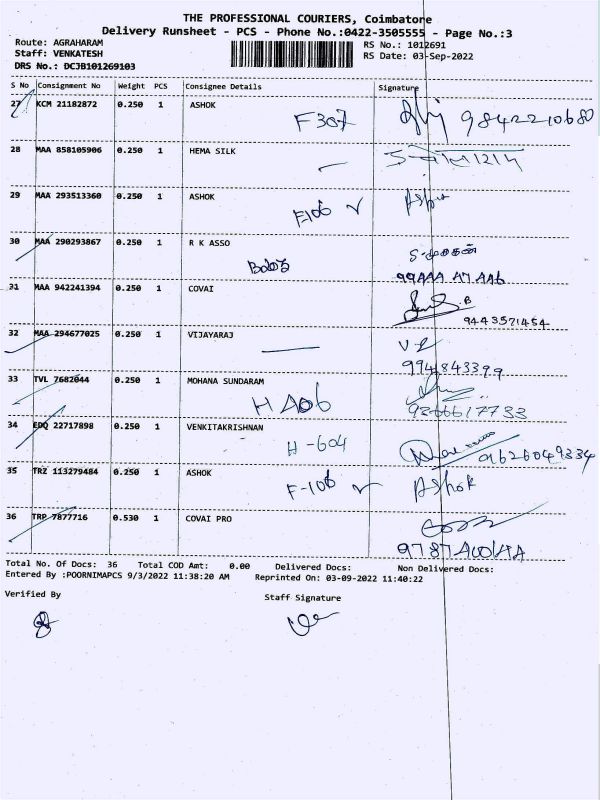 THE PROFESSIONAL COURIERS, Coimbatore
Delivery Runsheet - PCS - Phone No.:0422-3505555 - Page No.:3
Route: AGRAHARAM
Staff: VENKATESH
DRS No.: DCJB101269103
RS No.: 1012691
RS Date: 03-Sep-2022
S No Consignment No Weight PCS Consignee Details Signature
27 KCM 21182872 0.250 1 ASHOK F307 9842210680
28 MAA 858105906 0.250 1 HEMA SILK
29 MAA 293513360 0.250 1 ASHOK F106 Ashok
30 MAA 290293867 0.250 1 R K ASSO
31 MAA 942241394 0.250 1 COVAI 9443571454
32 MAA 294677025 0.250 1 VIJAYARAJ
33 TVL 7682044 0.250 1 MOHANA SUNDARAM HA06
34 EDQ 22717898 0.250 1 VENKITAKRISHNAN H-604 9626049334
35 TRZ 113279484 0.250 1 ASHOK F-106 Ashok
36 TRP 7877716 0.530 1 COVAI PRO
Total No. Of Docs: 36 Total COD Amt: 0.00 Delivered Docs: Non Delivered Docs:
Entered By :POORNIMAPCS 9/3/2022 11:38:20 AM Reprinted On: 03-09-2022 11:40:22
Verified By Staff Signature